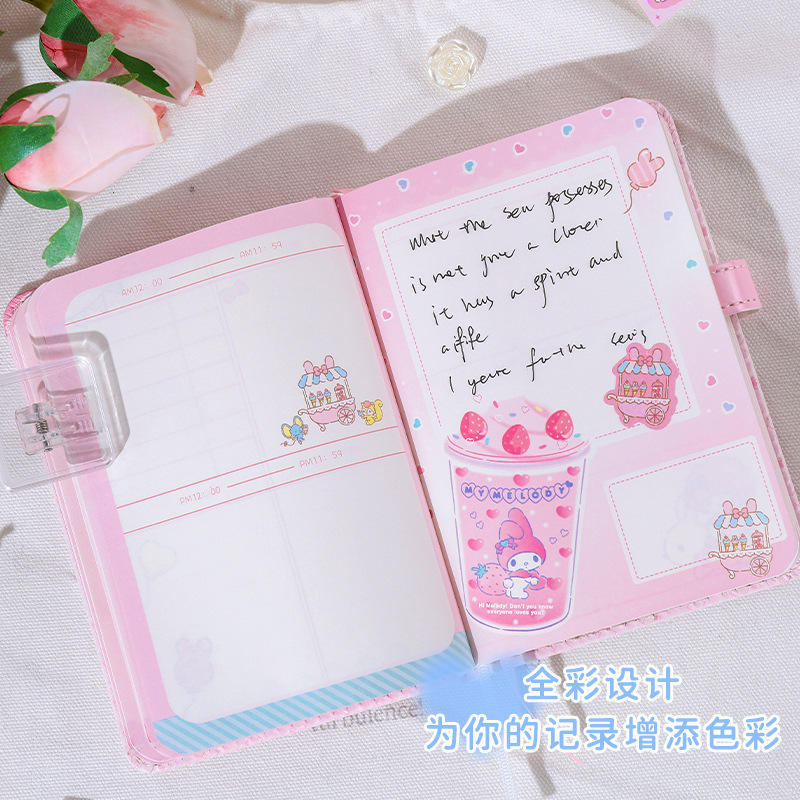 AM12:00 AM11:59
PM12:00 PM11:59
what the sea possesses
is not just a lover
it has a spirit and
a life
I for the
MYMELODY
Hi Melody! Don't you know
everyone loves you!!
全彩设计
为你的记录增添色彩